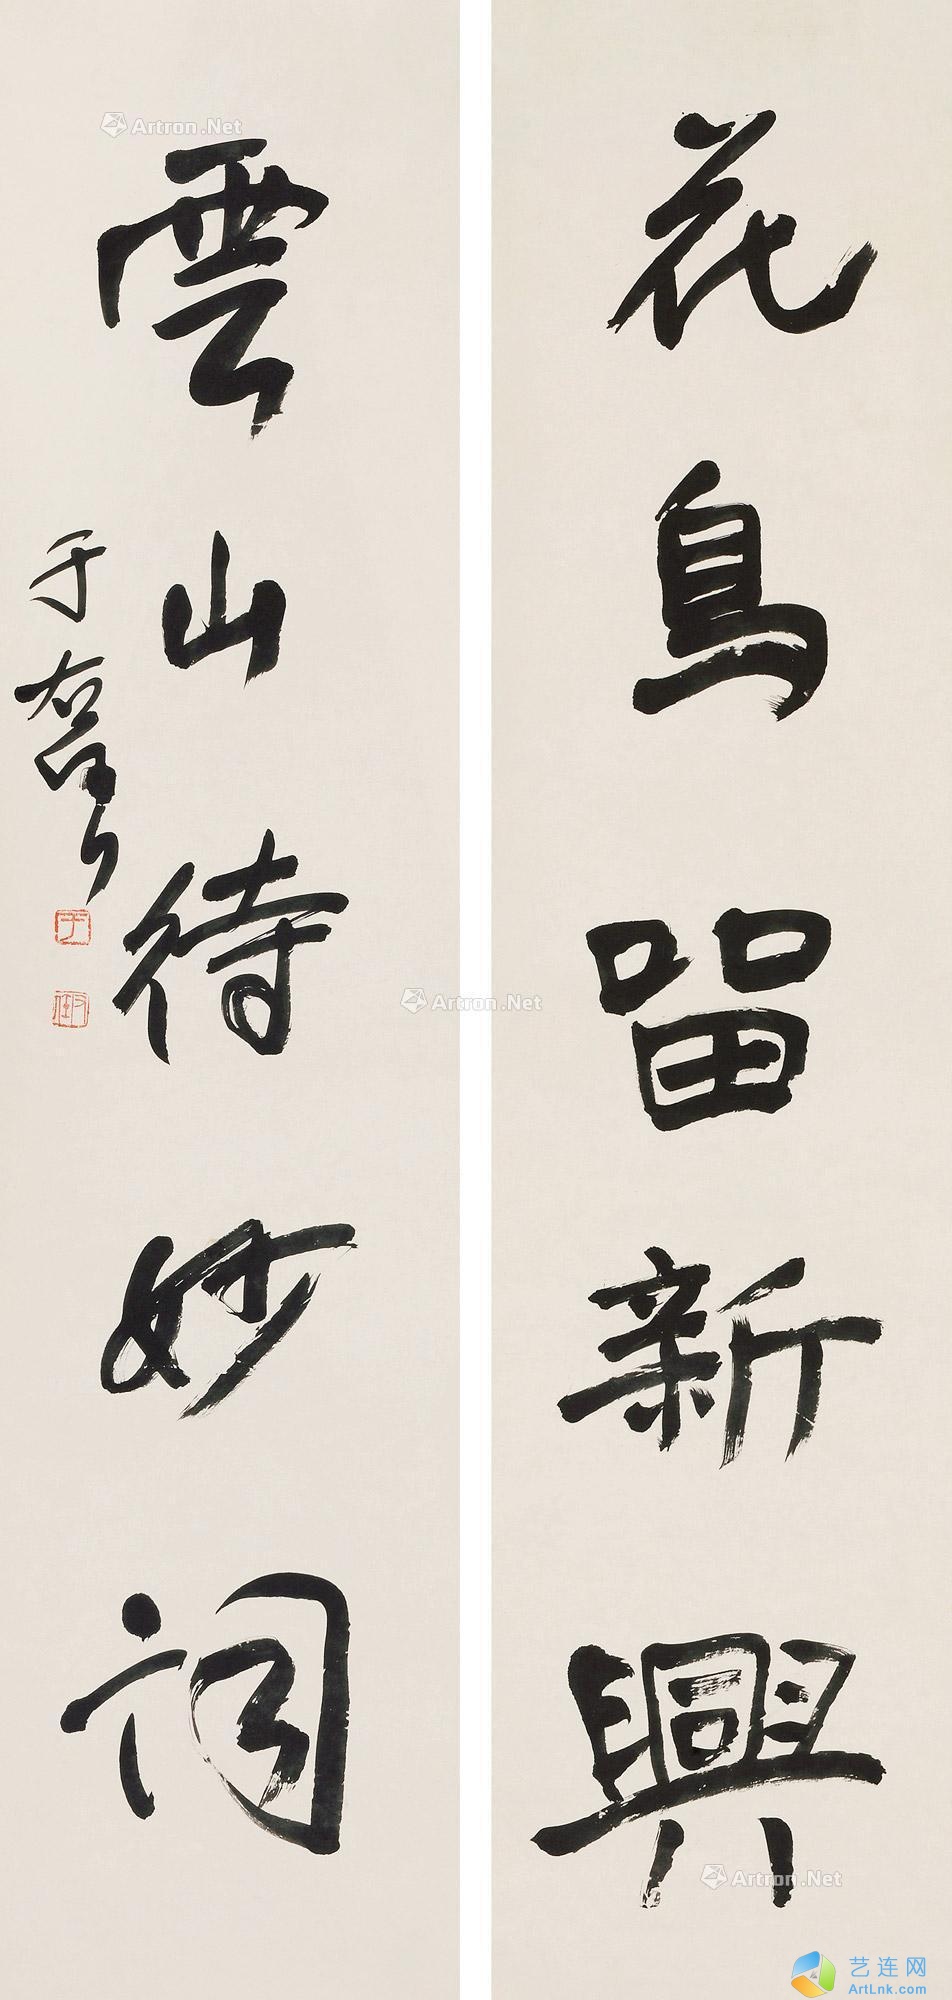 花鳥留新興
雲山待妙詞
于
于
Artron.Net
Artron.Net
Artron.Net
艺连网
ArtLnk.com